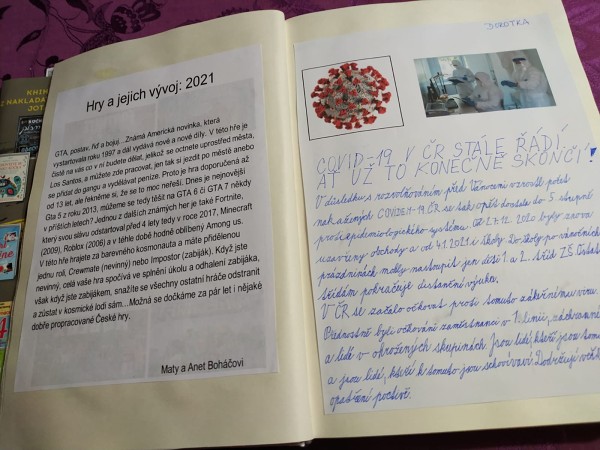 KNIH
Z NAKLADA
JOT
Hry a jejich vývoj: 2021
GTA, postav, řiď a bojuj...Známá Americká novinka, která
vystartovala roku 1997 a dál vydává nové a nové díly. V této hře je
čistě na vás co v ní budete dělat, jelikož se octnete uprostřed města,
Los Santos, a můžete zde pracovat, jen tak si jezdit po městě anebo
se přidat do gangu a vydělávat peníze. Proto je hra doporučená až
od 13 let, ale řekněme si, že se to moc neřeší. Dnes je nejnovější
Gta 5 z roku 2013, můžeme se tedy těšit na GTA 6 či GTA 7 někdy
v příštích letech? Jednou z dalších známých her je také Fortnite,
který svou slávu odstartoval před 4 lety tedy v roce 2017, Minecraft
(2009), Roblox (2006) a v téhle době hodně oblíbený Among us.
V této hře hrajete za barevného kosmonauta a máte přidělenou
jednu roli, Crewmate (nevinný) nebo Impostor (zabiják). Když jste
nevinný, celá vaše hra spočívá ve splnění úkolu a odhalení zabijáka,
však když jste zabijákem, snažíte se všechny ostatní hráče odstranit
a zůstat v kosmické lodi sám...Možná se dočkáme za pár let i nějaké
dobře propracované České hry.
Maty a Anet Boháčovi
DOROTKA
COVID-19 V ČR STÁLE ŘÁDÍ.
AŤ UŽ TO KONEČNĚ SKONČÍ!
V důsledku s rozvolňováním před Vánocemi vzrostl počet
nakažených COVIDEM-19. ČR se tak opět dostala do 5. stupně
protiepidemiologického systému. Od 27. 12. 2020 byly znova
uzavřeny obchody a od 4.1.2021 i školy. Do školy po vánočních
prázdninách mohly nastoupit jen děti 1. a 2. tříd ZŠ.
třídám pokračuje distanční výuka.
V ČR se začalo očkovat proti tomuto zákeřnému viru.
Přednostně byli očkováni zaměstnanci v
a lidé v ohrožených skupinách. Jsou lidé, kteří jsou
a jsou lidé, kteří k tomuto jsou Dodržují
opatření poctivě.